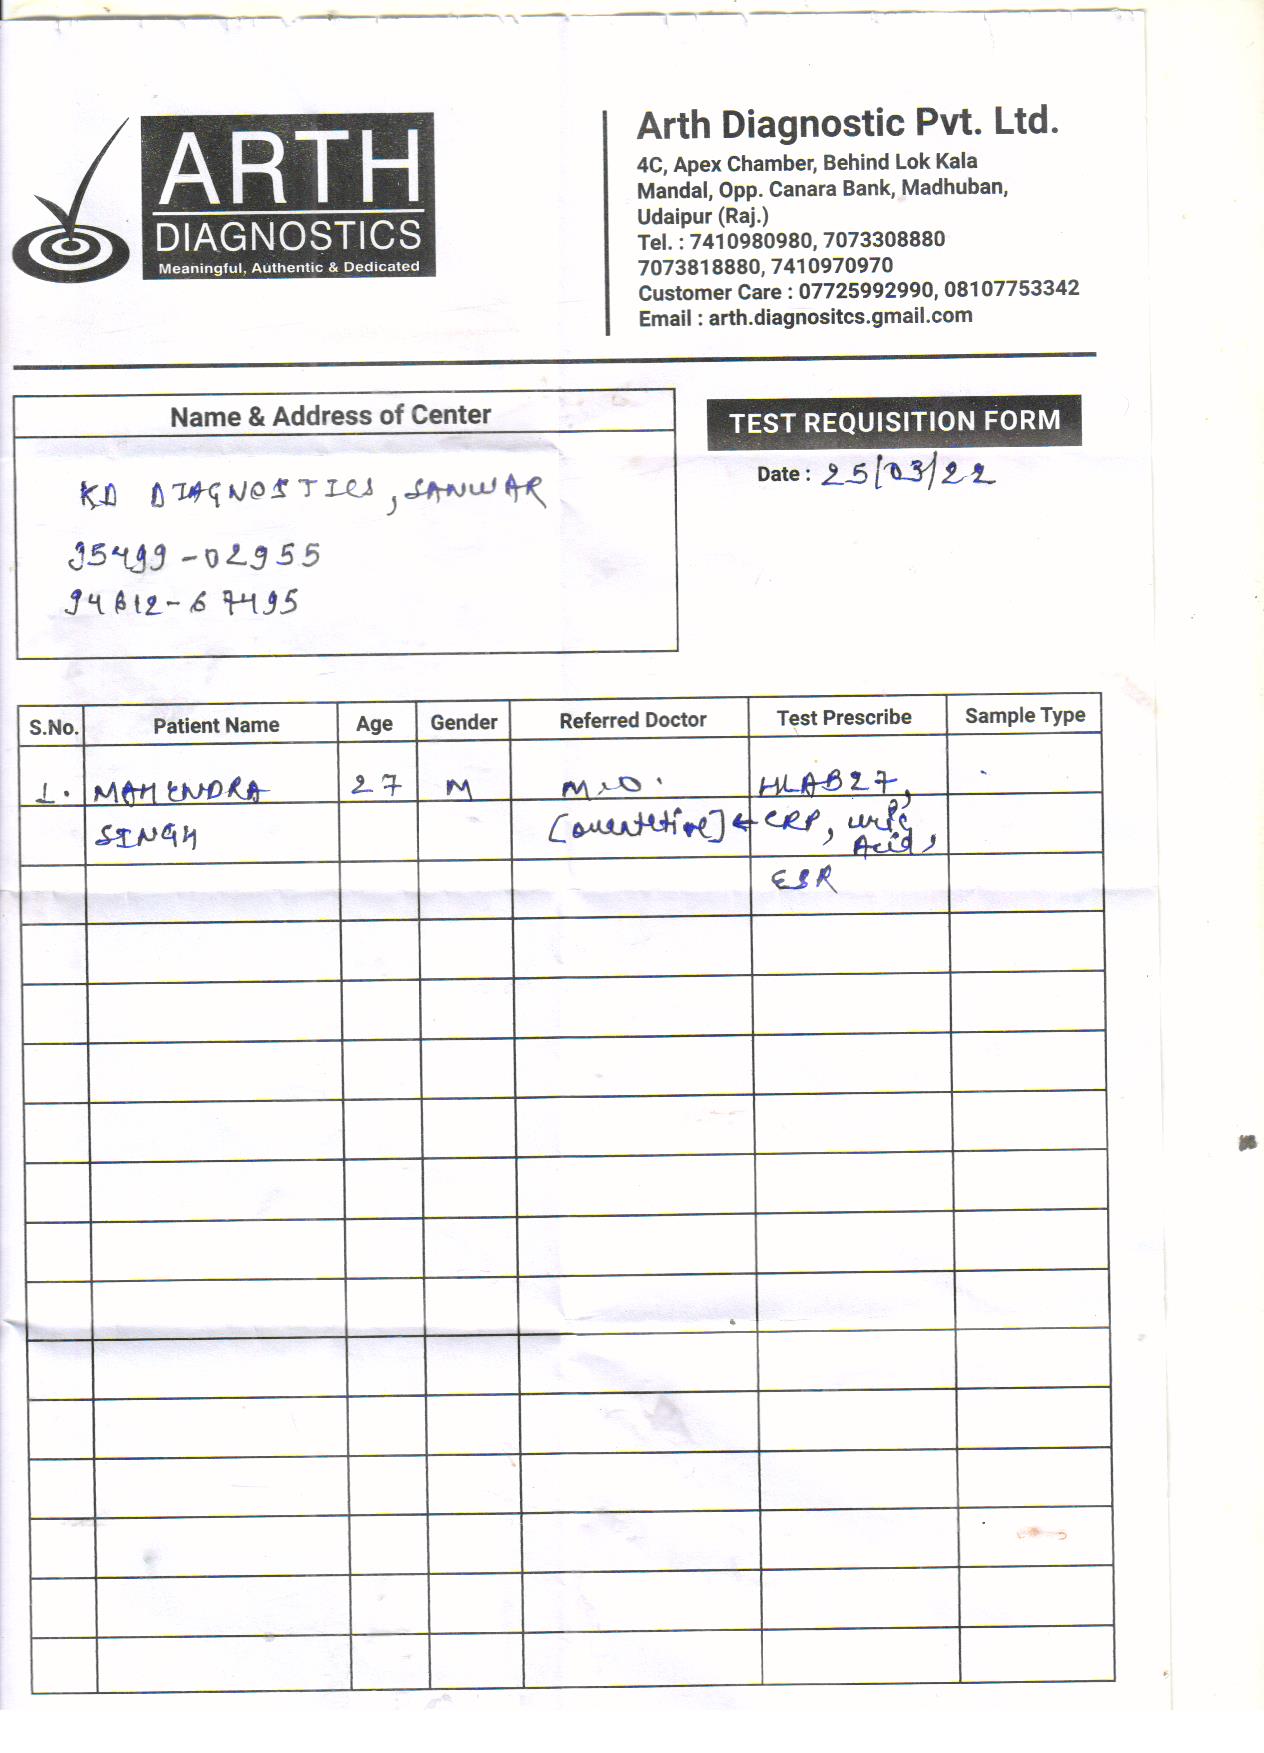 ARTH
DIAGNOSTICS
Meaningful, Authentic & Dedicated
Arth Diagnostic Pvt. Ltd.
4C, Apex Chamber, Behind Lok Kala
Mandal, Opp. Canara Bank, Madhuban,
Udaipur (Raj.)
Tel. : 7410980980, 7073308880
7073818880, 7410970970
Customer Care : 07725992990, 08107753342
Email : arth.diagnositcs.gmail.com
Name & Address of Center
KD DIAGNOSTICS, SANWAR
95499-02955
94612-67495
TEST REQUISITION FORM
Date : 25/03/22
S.No. Patient Name Age Gender Referred Doctor Test Prescribe Sample Type
1. MAHENDRA 27 M M.O. HLAB27,
SINGH ← CRP, uric
Acid,
ESR